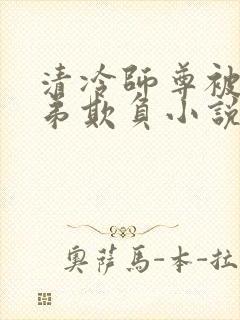 清冷師尊被
弟欺負小說
奧薩馬-本-拉